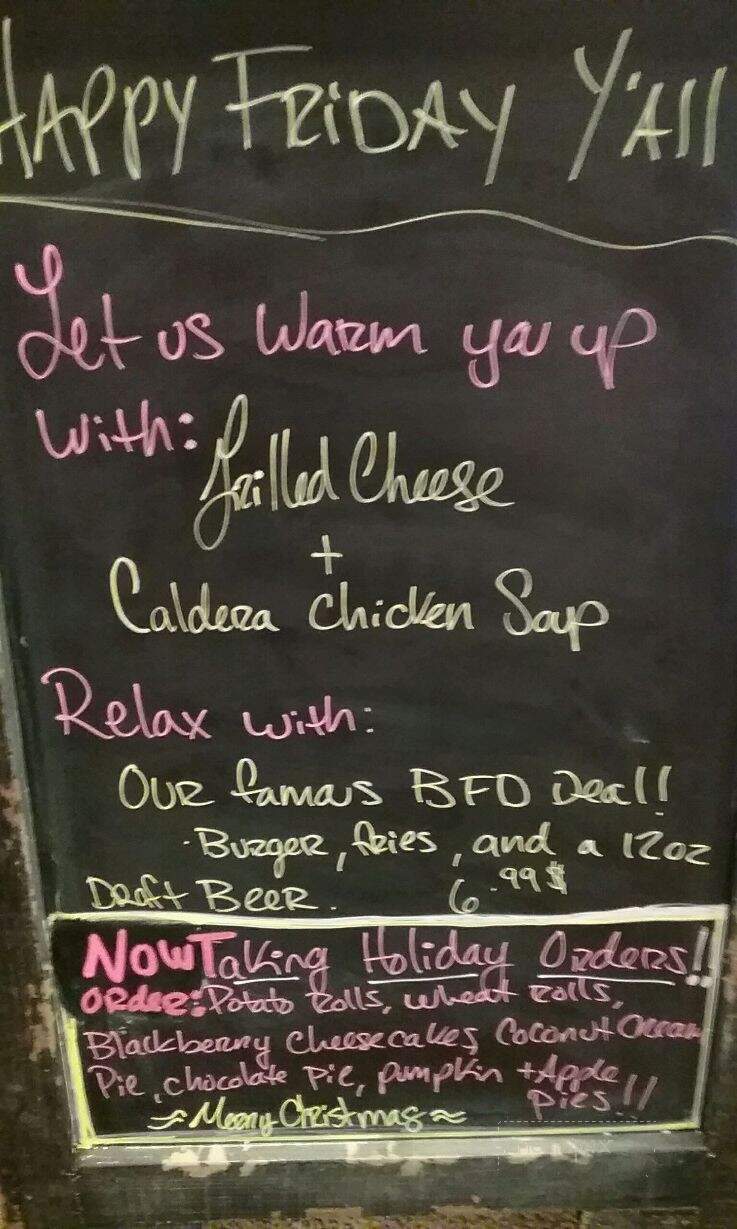 HAPPY FRIDAY Y'All
Let us Warm you up
With:
Grilled Cheese
+
Caldera Chicken Soup
Relax with:
Our famous BFD Deal!
·Burger, fries, and a 12oz
Draft Beer. 6.99$
Now Taking Holiday Orders!!
Order: Potato Rolls, wheat rolls,
Blackberry Cheesecakes, Coconut Cream
Pie, chocolate Pie, pumpkin + Apple
Pies!!
~ Merry Christmas ~